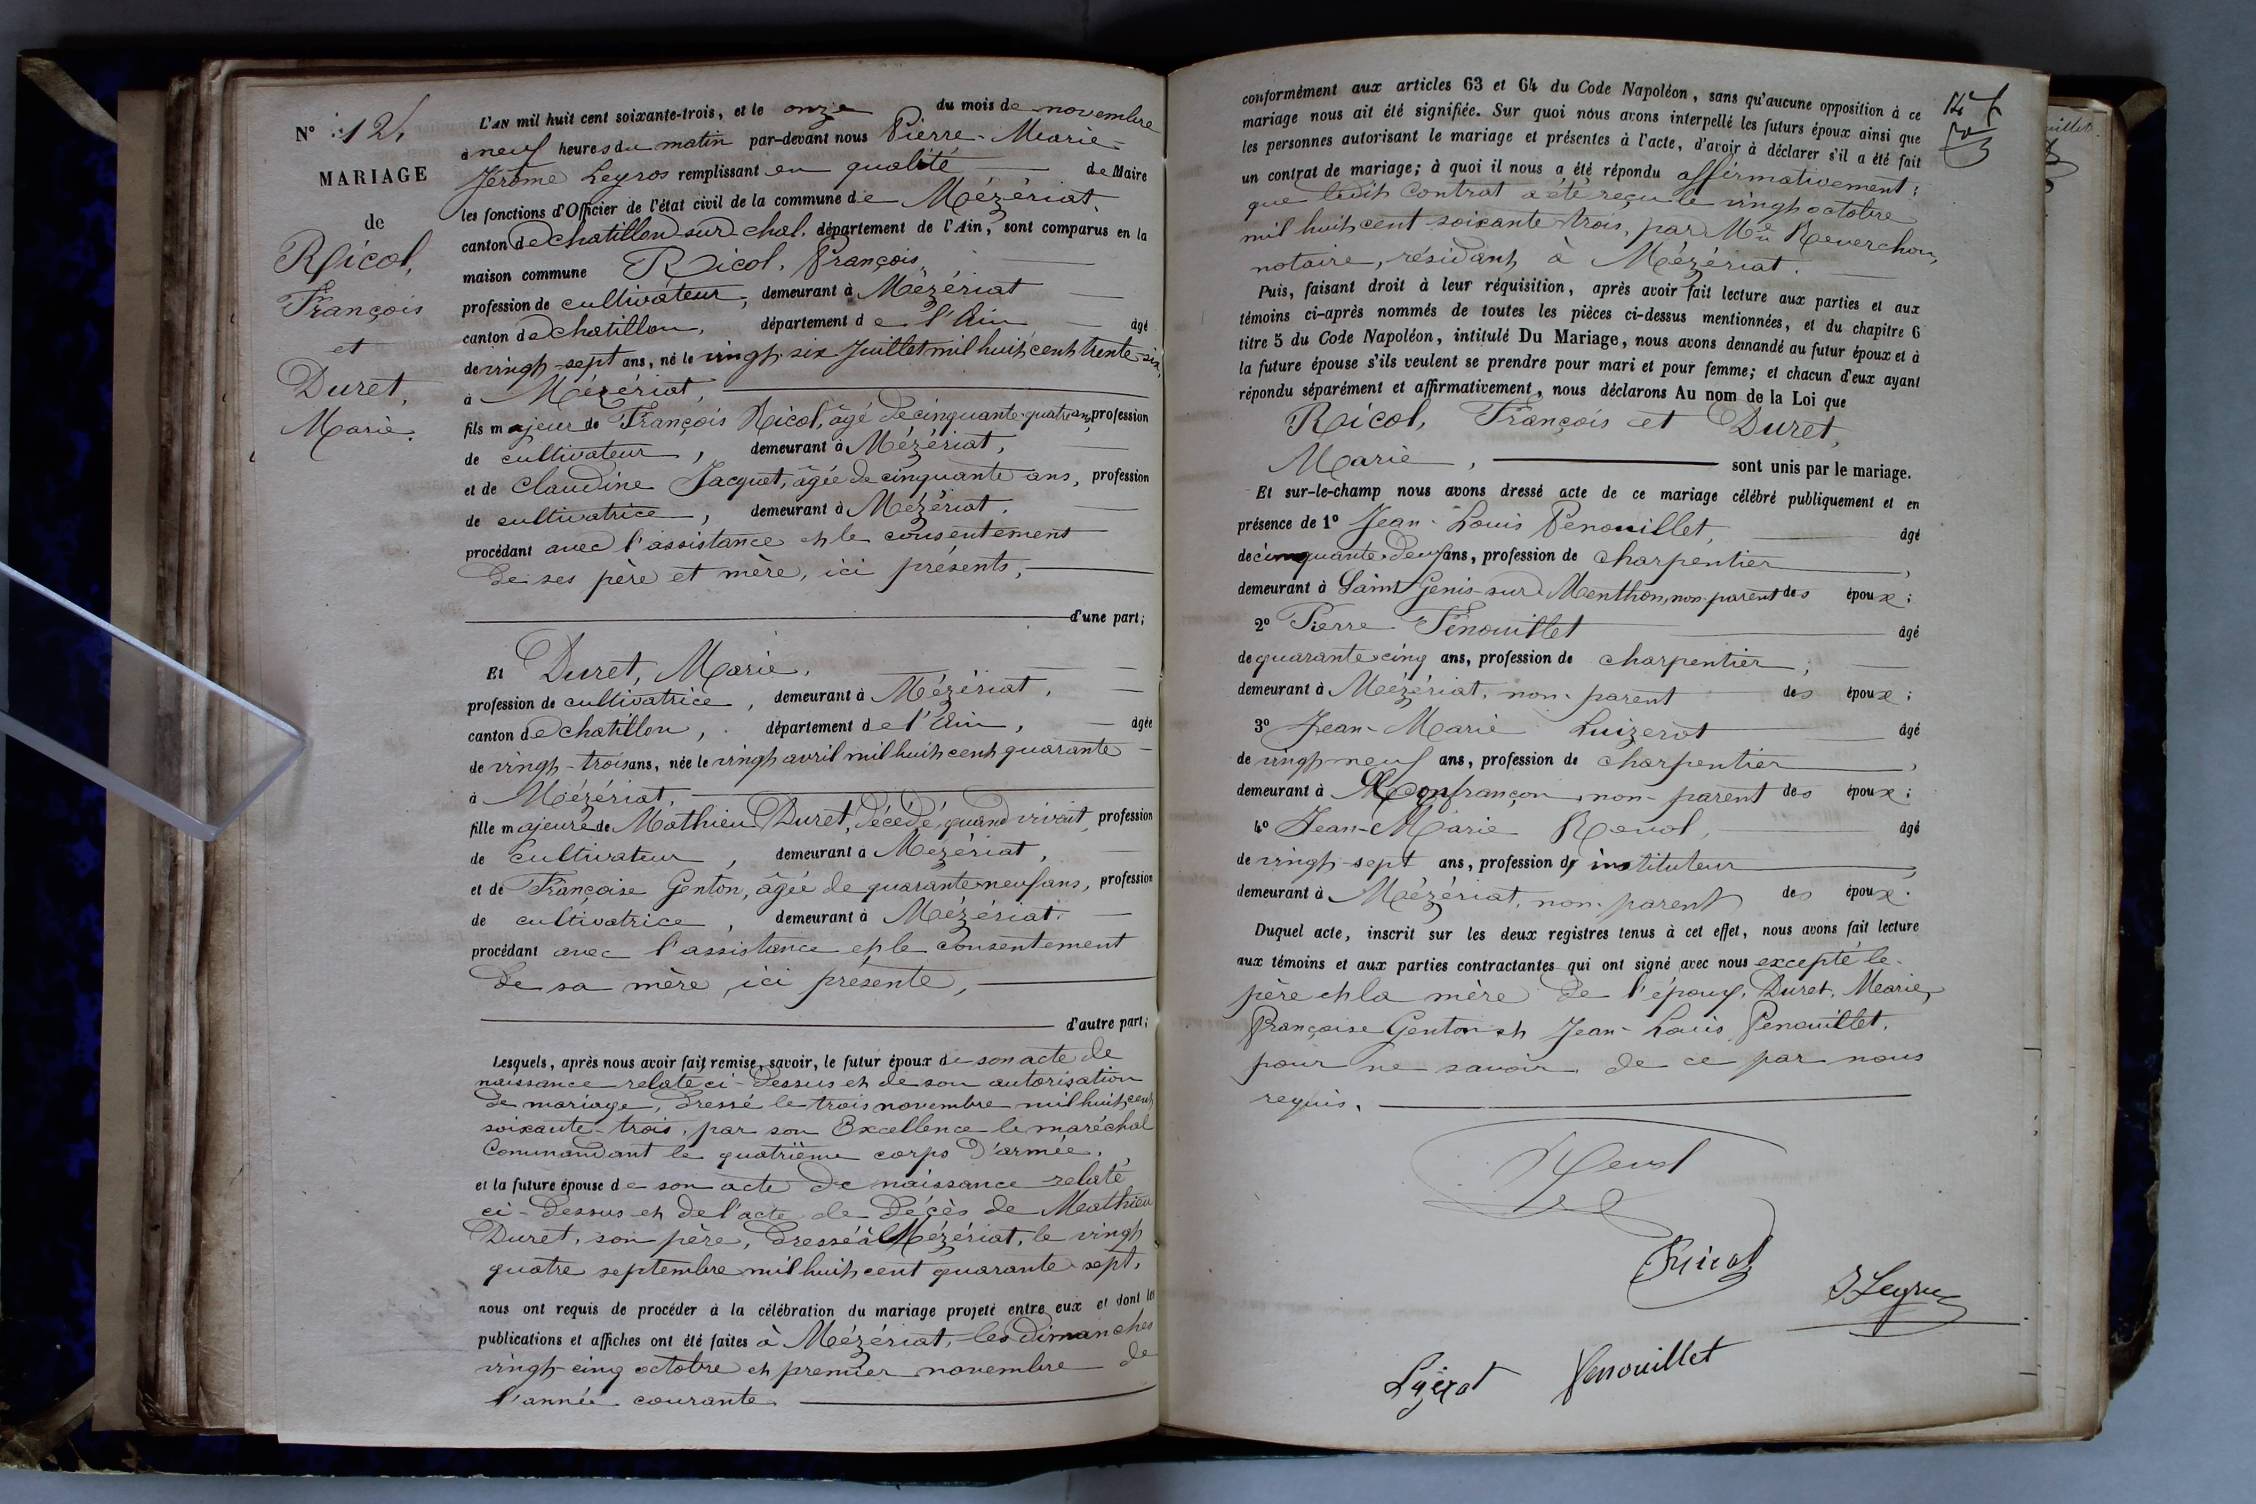 N° 12.
MARIAGE
de
Ricol,
François
et
Duret,
Marie.
L'AN mil huit cent soixante-trois, et le onze du mois de novembre
à neuf heures du matin par-devant nous Pierre-Marie-
Jérôme Leyros remplissant en qualité de Maire
les fonctions d'Officier de l'état civil de la commune de Mézériat,
canton de chatillon sur chal. département de l'Ain, sont comparus en la
maison commune Ricol, François,
profession de cultivateur, demeurant à Mézériat
canton de chatillon, département de l'Ain âgé
de vingt-sept ans, né le vingt-six Juillet mil huit cent trente six,
à Mézériat,
fils majeur de François Ricol, âgé de cinquante-quatre ans, profession
de cultivateur, demeurant à Mézériat,
et de Claudine Jacquet, âgée de cinquante ans, profession
de cultivatrice, demeurant à Mézériat,
procédant avec l'assistance et le consentement
de ses père et mère, ici présents,
d'une part;
Et Duret, Marie,
profession de cultivatrice, demeurant à Mézériat,
canton de chatillon, département de l'Ain, âgée
de vingt-trois ans, née le vingt avril mil huit cent quarante
à Mézériat,
fille majeure de Mathieu Duret, décédé, quand vivait, profession
de cultivateur, demeurant à Mézériat,
et de Françoise Genton, âgée de quarante-neuf ans, profession
de cultivatrice, demeurant à Mézériat.
procédant avec l'assistance et le consentement
de sa mère, ici présente,
d'autre part;
Lesquels, après nous avoir fait remise, savoir, le futur époux de son acte de
naissance relaté ci-dessus et de son autorisation
de mariage, dressé le trois novembre mil huit cent
soixante-trois, par son Excellence le maréchal
Commandant le quatrième corps d'armée.
et la future épouse de son acte de naissance relaté
ci-dessus et de l'acte de décès de Mathieu
Duret, son père, dressé à Mézériat, le vingt
quatre septembre mil huit cent quarante-sept,
nous ont requis de procéder à la célébration du mariage projeté entre eux et dont les
publications et affiches ont été faites à Mézériat, les dimanches
vingt-cinq octobre et premier novembre de
l'année courante
conformément aux articles 63 et 64 du Code Napoléon, sans qu'aucune opposition à ce
mariage nous ait été signifiée. Sur quoi nous avons interpellé les futurs époux ainsi que
les personnes autorisant le mariage et présentes à l'acte, d'avoir à déclarer s'il a été fait
un contrat de mariage; à quoi il nous a été répondu affirmativement;
que ledit contrat a été reçu le vingt octobre
mil huit cent soixante trois, par Me Reverchon,
notaire, résidant à Mézériat.
Puis, faisant droit à leur réquisition, après avoir fait lecture aux parties et aux
témoins ci-après nommés de toutes les pièces ci-dessus mentionnées, et du chapitre 6
titre 5 du Code Napoléon, intitulé Du Mariage, nous avons demandé au futur époux et à
la future épouse s'ils veulent se prendre pour mari et pour femme; et chacun d'eux ayant
répondu séparément et affirmativement, nous déclarons Au nom de la Loi que
Ricol, François et Duret,
Marie, sont unis par le mariage.
Et sur-le-champ nous avons dressé acte de ce mariage célébré publiquement et en
présence de 1° Jean-Louis Fenouillet, âgé
de cinquante-deux ans, profession de charpentier,
demeurant à Saint Genis-sur-Menthon, non-parent des époux;
2° Pierre Fenouillet âgé
de quarante cinq ans, profession de charpentier,
demeurant à Mézériat, non-parent des époux;
3° Jean-Marie Luizerot âgé
de vingt-neuf ans, profession de charpentier,
demeurant à Confrançon, non-parent des époux;
4° Jean-Marie Revol, âgé
de vingt-sept ans, profession d'instituteur,
demeurant à Mézériat, non-parent des époux.
Duquel acte, inscrit sur les deux registres tenus à cet effet, nous avons fait lecture
aux témoins et aux parties contractantes qui ont signé avec nous excepté le
père et la mère de l'époux, Duret, Marie,
Françoise Genton et Jean-Louis Fenouillet,
pour ne savoir, de ce par nous
requis.
Revol
Ricol
Fenouillet